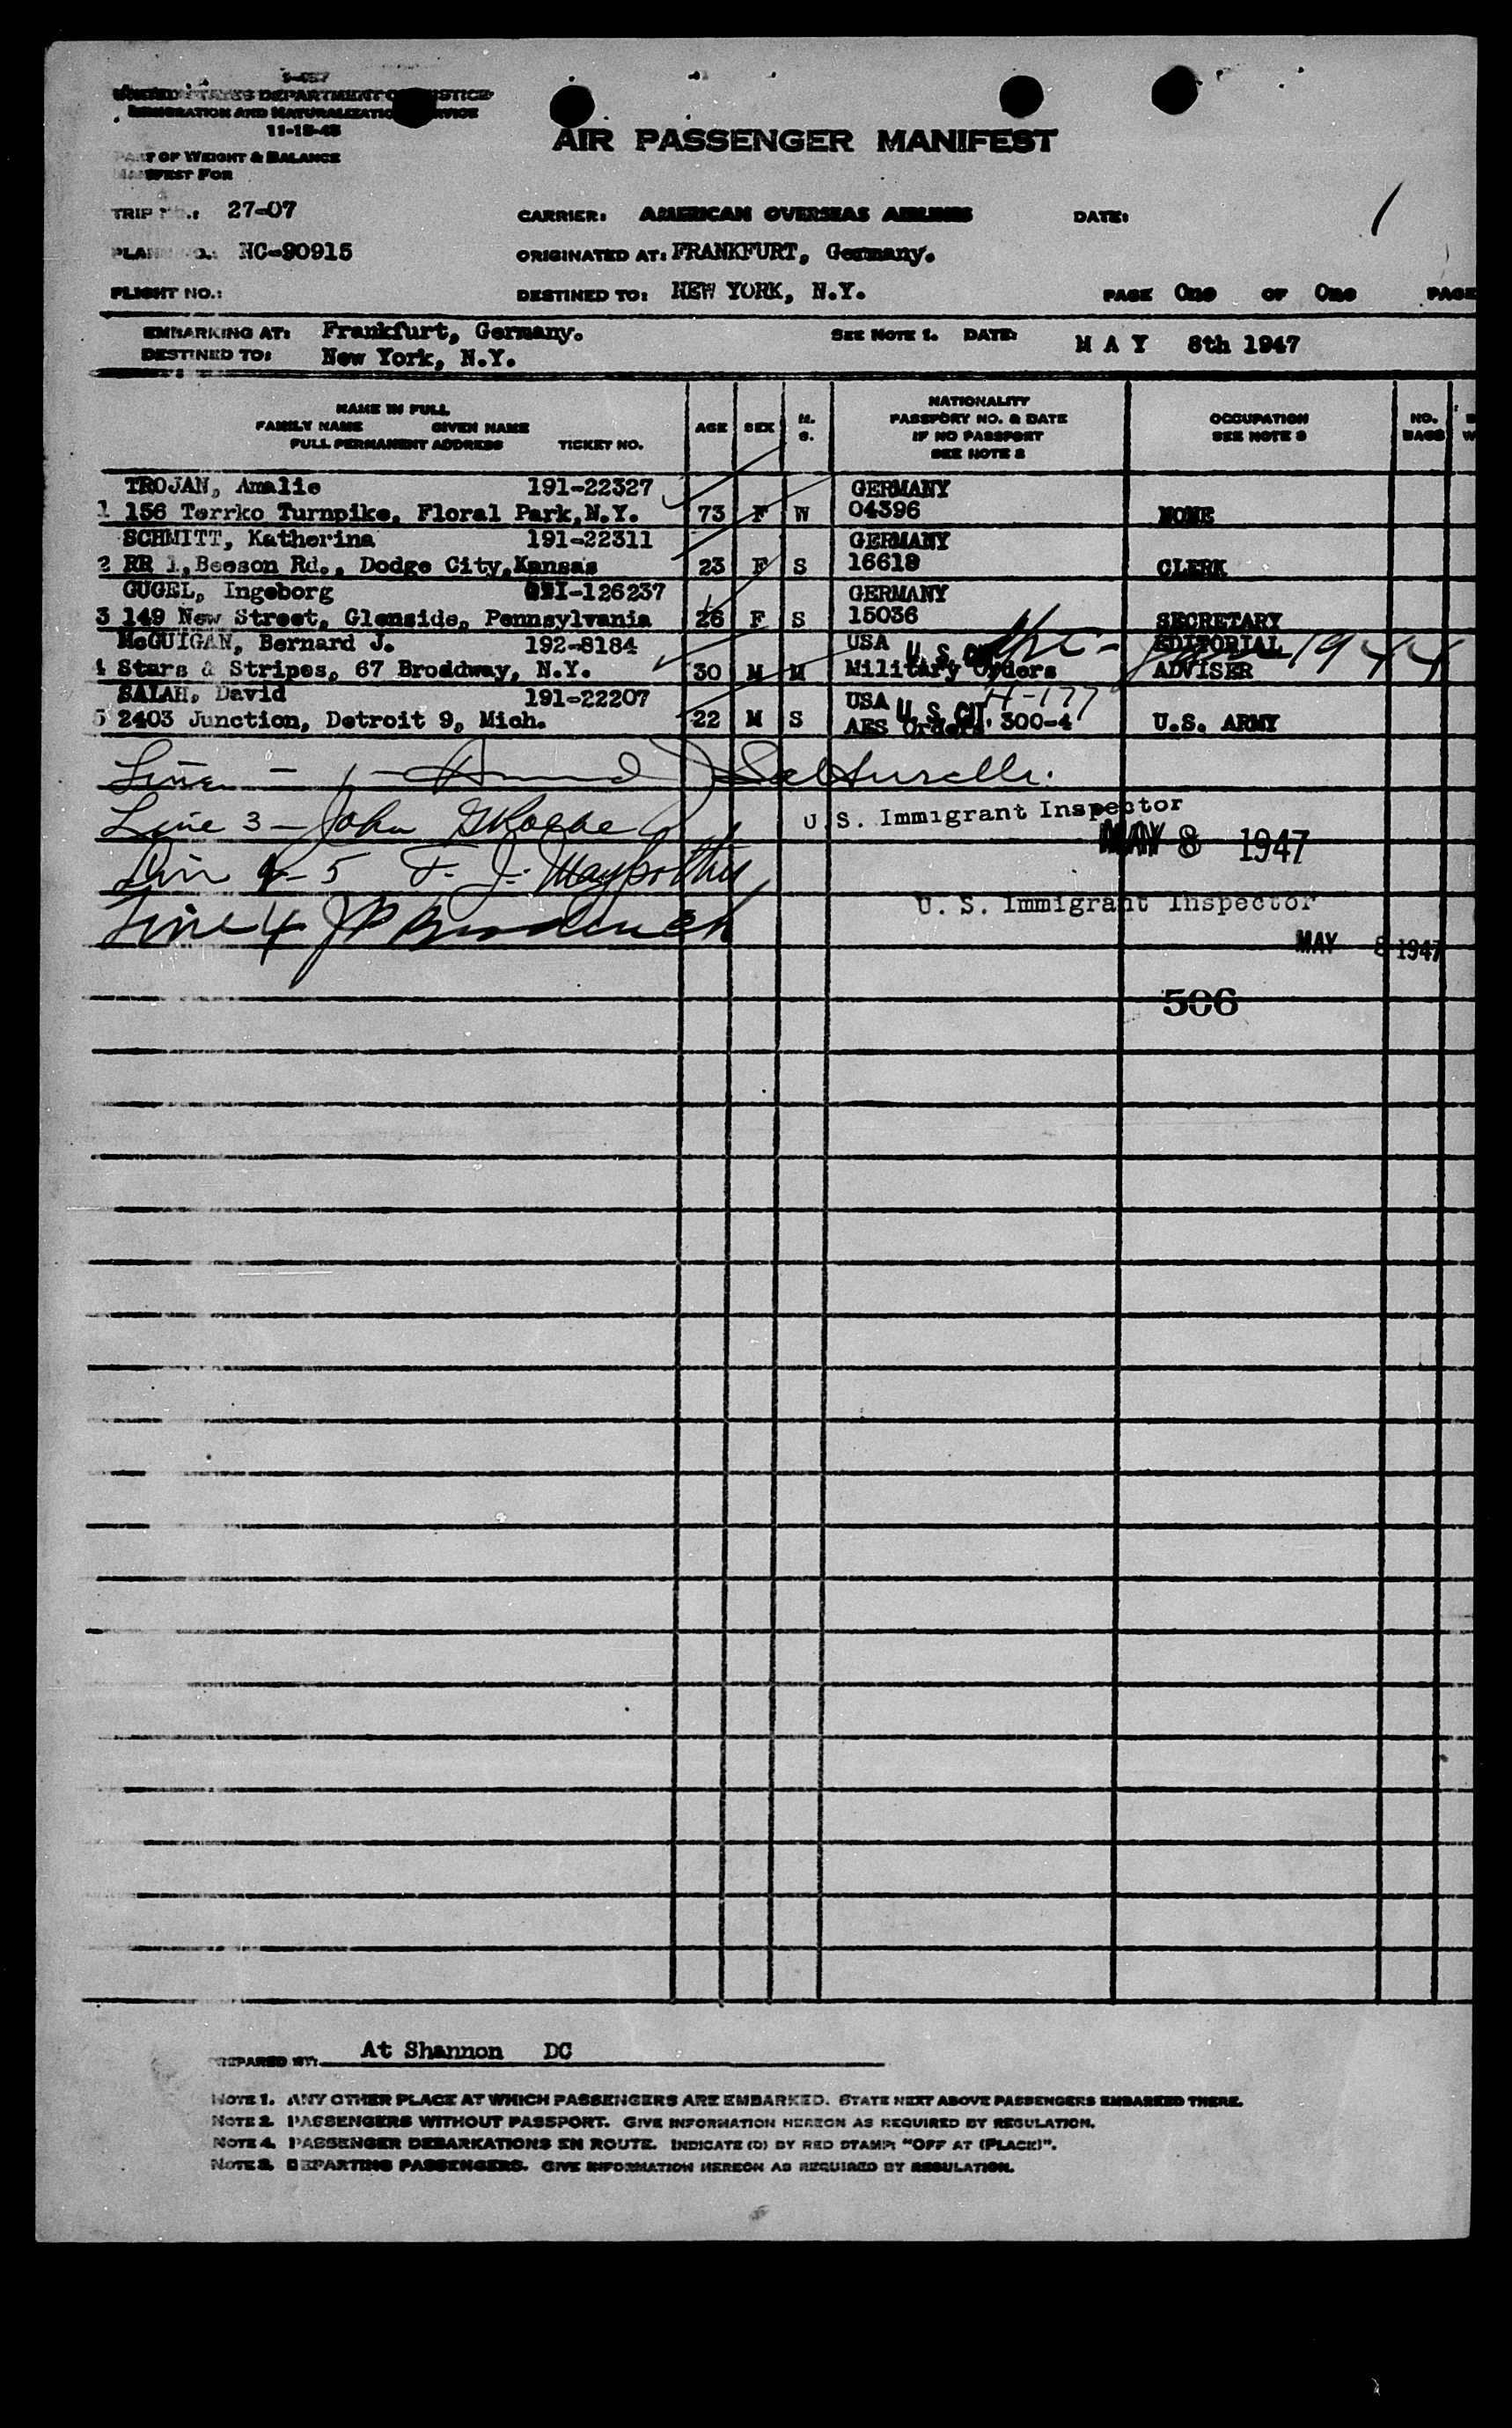 UNITED STATES DEPARTMENT OF JUSTICE
IMMIGRATION AND NATURALIZATION SERVICE
11-15-45
AIR PASSENGER MANIFEST
PART OF WEIGHT & BALANCE
MANIFEST FOR
TRIP NO.: 27-07 CARRIER: AMERICAN OVERSEAS AIRLINES DATE: 1
PLANE NO.: NC-90915 ORIGINATED AT: FRANKFURT, Germany.
FLIGHT NO.: DESTINED TO: NEW YORK, N.Y. PAGE One OF One PAGE
EMBARKING AT: Frankfurt, Germany. SEE NOTE 1. DATE: MAY 8th 1947
DESTINED TO: New York, N.Y.
NAME IN FULL
FAMILY NAME GIVEN NAME
FULL PERMANENT ADDRESS TICKET NO.
AGE SEX M. S.
NATIONALITY
PASSPORT NO. & DATE
IF NO PASSPORT
SEE NOTE 2
OCCUPATION
SEE NOTE 3
NO. BAGS
TROJAN, Amalie 191-22327 GERMANY
1 156 Terrko Turnpike, Floral Park,N.Y. 73 F W 04396 NONE
SCHMITT, Katherina 191-22311 GERMANY
2 RR 1,Beeson Rd., Dodge City,Kansas 23 F S 16619 CLERK
GUGEL, Ingeborg I-126237 GERMANY
3 149 New Street, Glenside, Pennsylvania 26 F S 15036 SECRETARY
McGUIGAN, Bernard J. 192-8184 USA U. S. CIT. EDITORIAL 1944
4 Stars & Stripes, 67 Broadway, N.Y. 30 M M Military Orders ADVISER
SALAH, David 191-22207 USA U. S. CIT. H-177
5 2403 Junction, Detroit 9, Mich. 22 M S AES Orders 300-4 U.S. ARMY
Line - 1-
Line 3 - John
U. S. Immigrant Inspector
MAY 8 1947
4-5 F. J.
U. S. Immigrant Inspector
Line 4 JP
MAY 8 1947
506
PREPARED BY: At Shannon DC
NOTE 1. ANY OTHER PLACE AT WHICH PASSENGERS ARE EMBARKED. STATE NEXT ABOVE PASSENGERS EMBARKED THERE.
NOTE 2. PASSENGERS WITHOUT PASSPORT. GIVE INFORMATION HEREON AS REQUIRED BY REGULATION.
NOTE 4. PASSENGER DEBARKATIONS EN ROUTE. INDICATE (D) BY RED STAMP: "OFF AT (PLACE)".
NOTE 3. DEPARTING PASSENGERS. GIVE INFORMATION HEREON AS REQUIRED BY REGULATION.